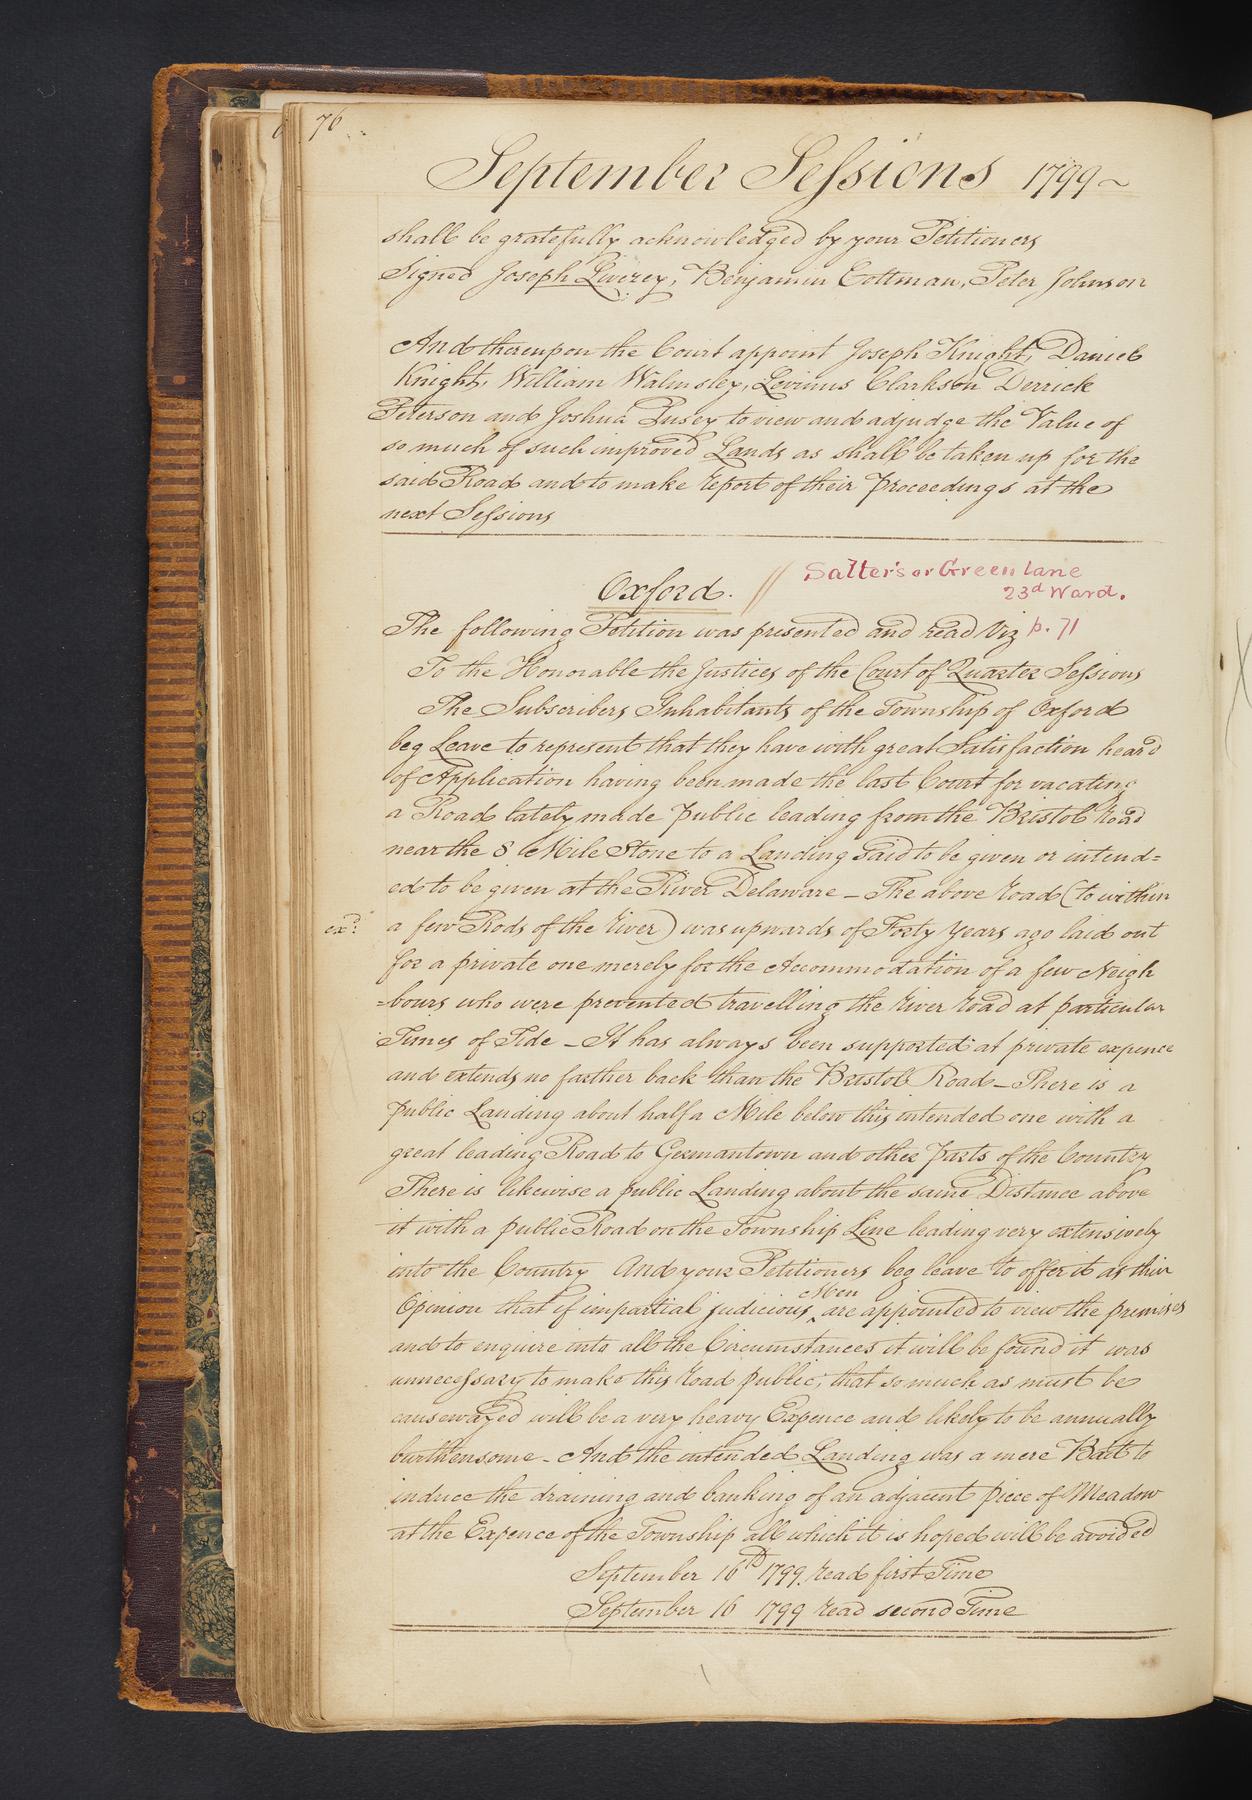 76
September Sessions 1799~
shall be gratefully acknowledged by your Petitioners
Signed Joseph Liverey, Benjamin Cottman, Peter Johnson
And thereupon the Court appoint Joseph Knight, Daniel
Knight, William Walmsley, Levinus Clarkson Derrick
Peterson and Joshua Pusey to view and adjudge the Value of
so much of such improved Lands as shall be taken up for the
said Road and to make report of their Proceedings at the
next Sessions
Oxford. // Salter's or Green lane
23d Ward.
The following Petition was presented and read Viz p. 71
To the Honorable the Justices of the Court of Quarter Sessions
The Subscribers Inhabitants of the Township of Oxford
beg Leave to represent that they have with great Satisfaction heard
of Application having been made the last Court for vacating
a Road lately made public leading from the Bristol Road
near the 8 Mile Stone to a Landing said to be given or intend=
ed to be given at the River Delaware _ The above road (to within
exd:
a few Rods of the river) was upwards of Forty years ago laid out
for a private one merely for the Accommodation of a few Neigh
=bours who were prevented travelling the river road at particular
Times of Tide _ It has always been supported at private expence
and extends no farther back than the Bristol Road _ There is a
public Landing about half a Mile below this intended one with a
great leading Road to Germantown and other Parts of the Country
There is likewise a public Landing about the same Distance above
it with a public Road on the Township Line leading very extensively
into the Country And your Petitioners beg leave to offer it as their
Opinion that if impartial judicious ^Men are appointed to view the premises
and to enquire into all the Circumstances it will be found it was
unnecessary to make this road public; that so much as must be
causewayed will be a very heavy Expence and likely to be annually
burthensome _ And the intended Landing was a mere Bait to
induce the draining and banking of an adjacent piece of Meadow
at the Expence of the Township all which it is hoped will be avoided
September 16th 1799 read first Time
September 16 1799 read second Time